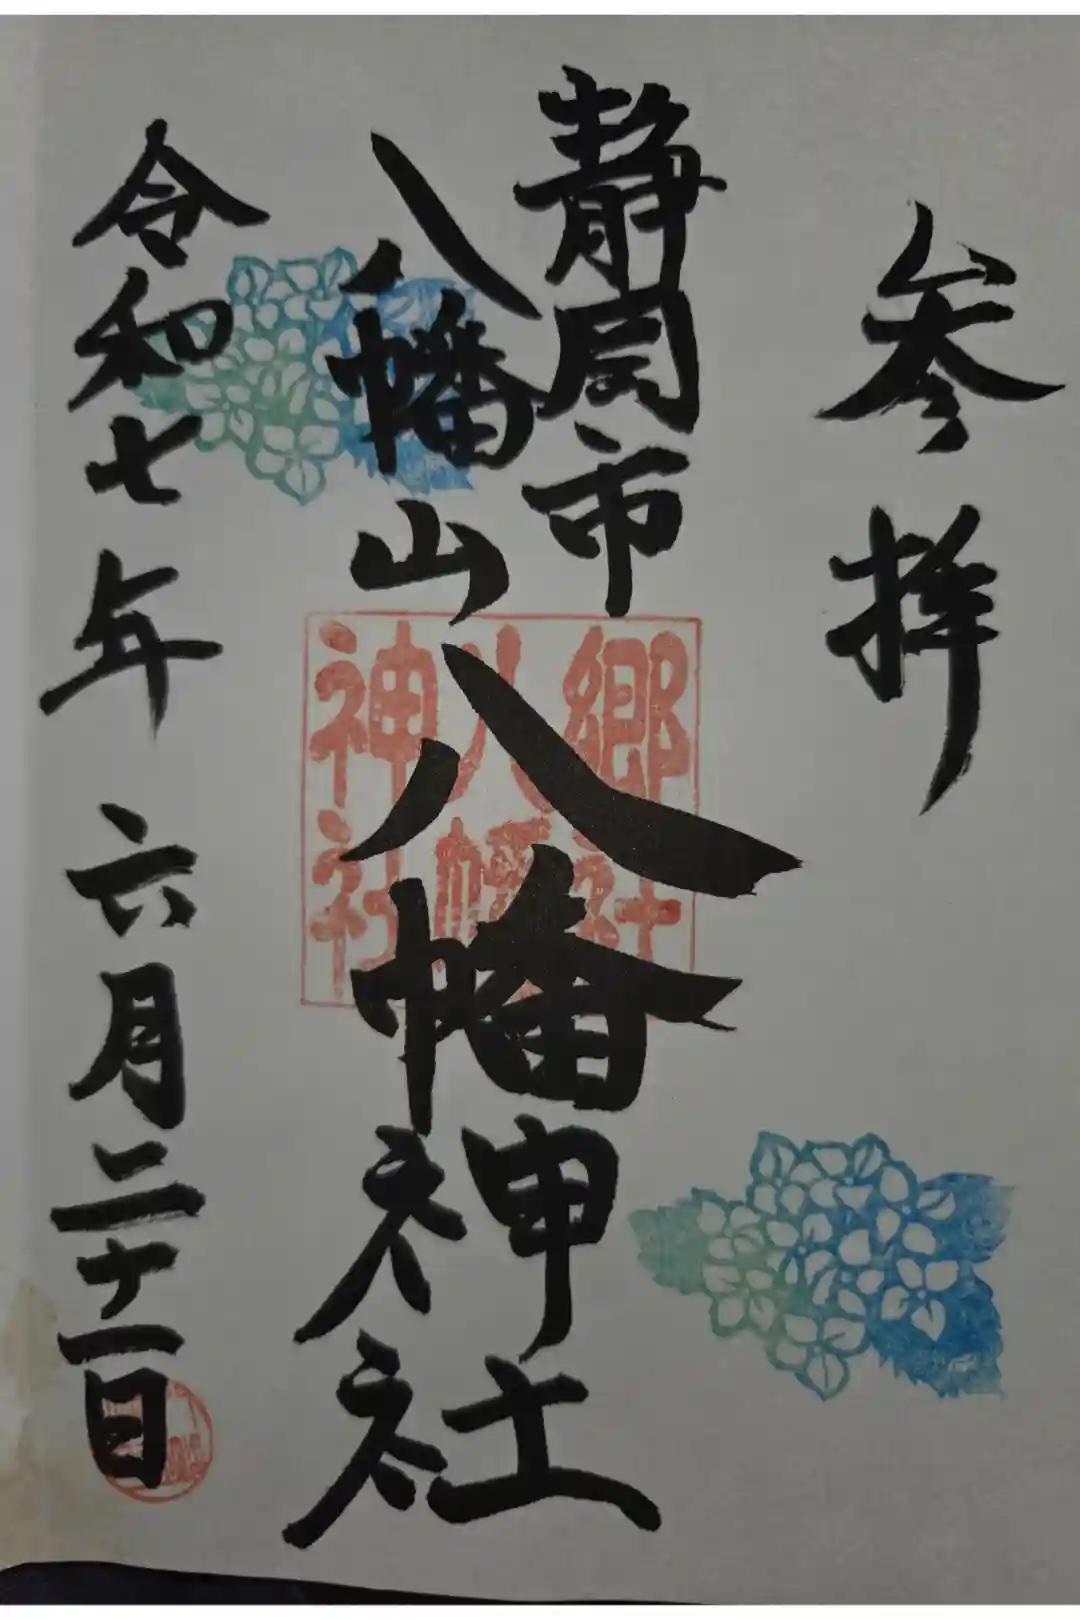 参拝
静岡市
八幡山
八幡神社
郷社
八幡
神社
令和七年六月二十一日